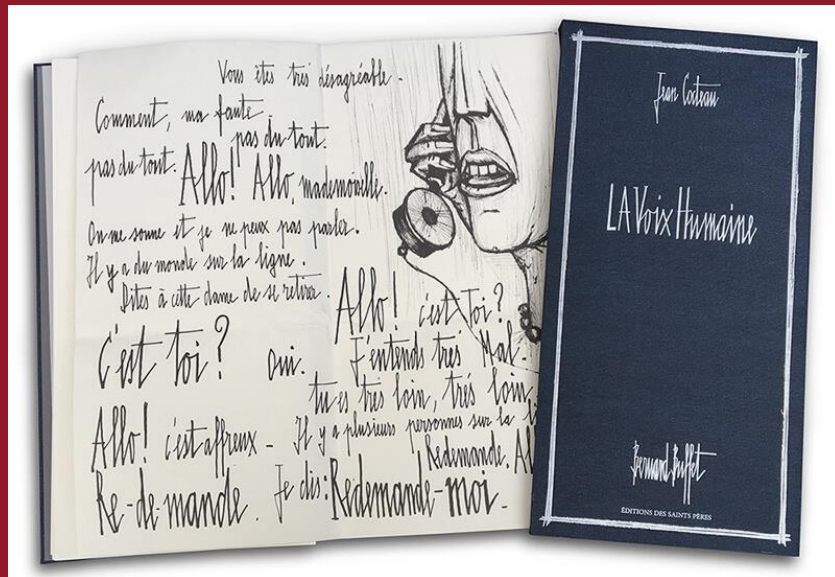 Vous êtes très désagréable -
Comment, ma faute,
pas du tout.
pas du tout. Allo! Allo, mademoiselle.
On me sonne et je ne peux pas parler.
Il y a du monde sur la ligne.
Dites à cette dame de se retirer.
Allo! c'est toi?
C'est toi? oui. J'entends très Mal -
tu es très loin, très loin,
Allo! c'est affreux - Il y a plusieurs personnes sur la
Redemande,
Re-de-mande. Je dis: Redemande-moi -
Jean Cocteau
LA Voix Humaine
Bernard Buffet
ÉDITIONS DES SAINTS PÈRES